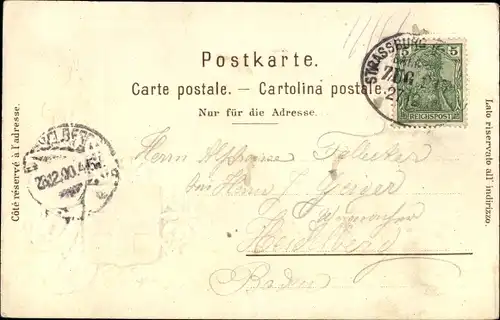 Postkarte.
Carte postale. — Cartolina postale.
Nur für die Adresse.
Côté réservé à l'adresse.
Lato riservato all' indirizzo.
STRASSBURG
ZUG
5 5
REICHSPOST
26.12.00.
Herrn Alphonse
bei Herrn J. Geiger
Heidelberg
Baden